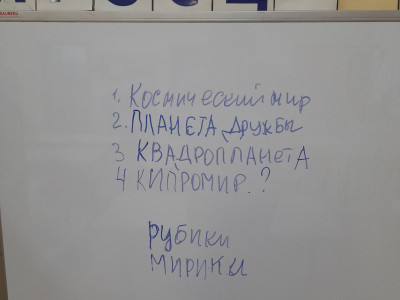 1. Космический мир
2. ПЛАНЕТА ДРУЖБЫ
3 КВАДРОПЛАНЕТА
4 КИПРОМИР. ?
РУБИКИ
МИРИКИ